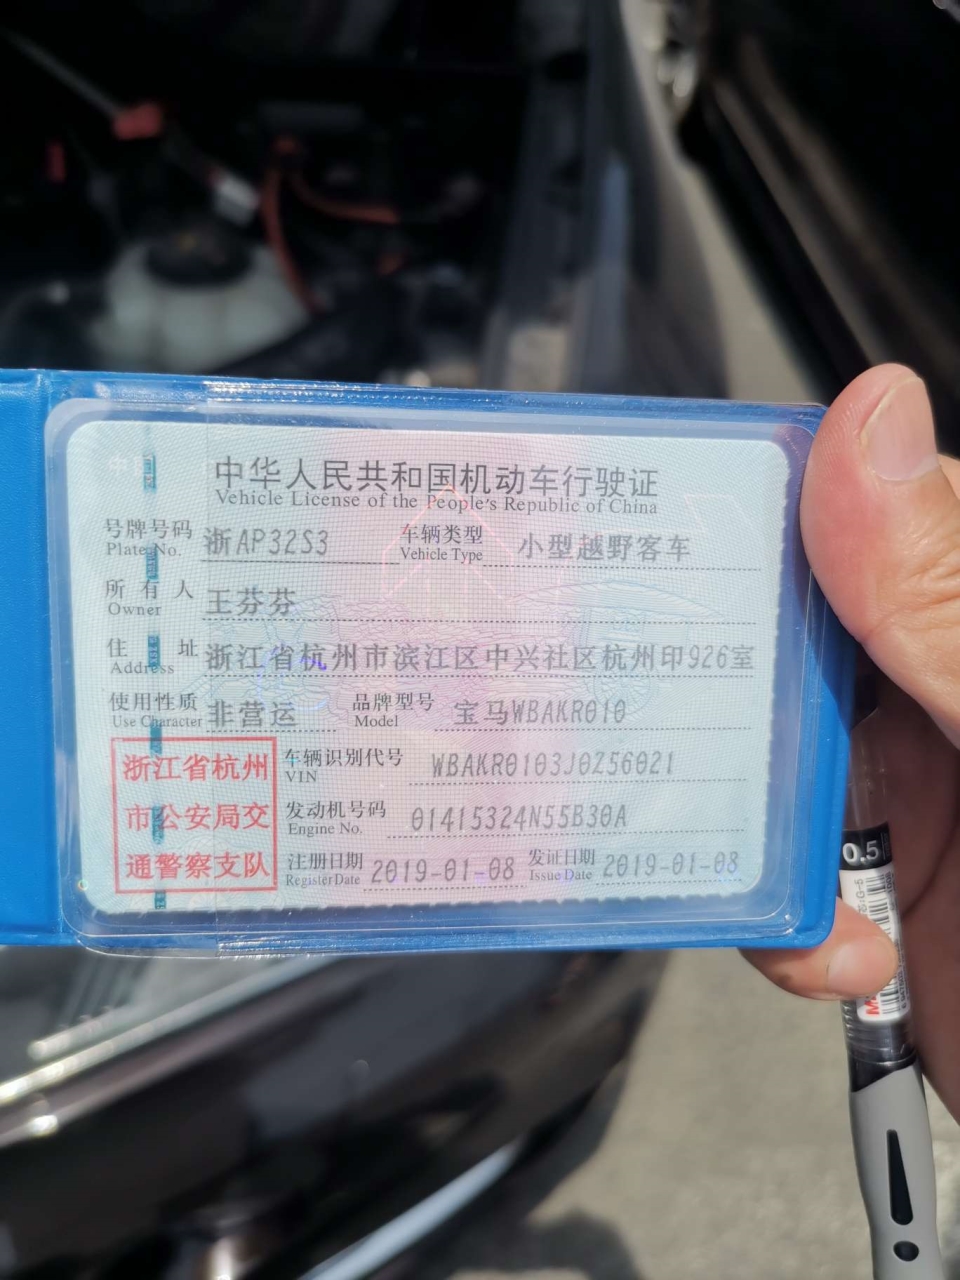 中华人民共和国机动车行驶证
Vehicle License of the People's Republic of China
号牌号码 浙AP32S3 车辆类型 小型越野客车
Plate No. Vehicle Type
所有人 王芬芬
Owner
住址 浙江省杭州市滨江区中兴社区杭州印926室
Address
使用性质 非营运 品牌型号 宝马WBAKR010
Use Character Model
浙江省杭州
市公安局交
通警察支队
车辆识别代号 WBAKR0103J0Z56021
VIN
发动机号码 01415324N55B30A
Engine No.
注册日期 2019-01-08 发证日期 2019-01-08
Register Date Issue Date
0.5